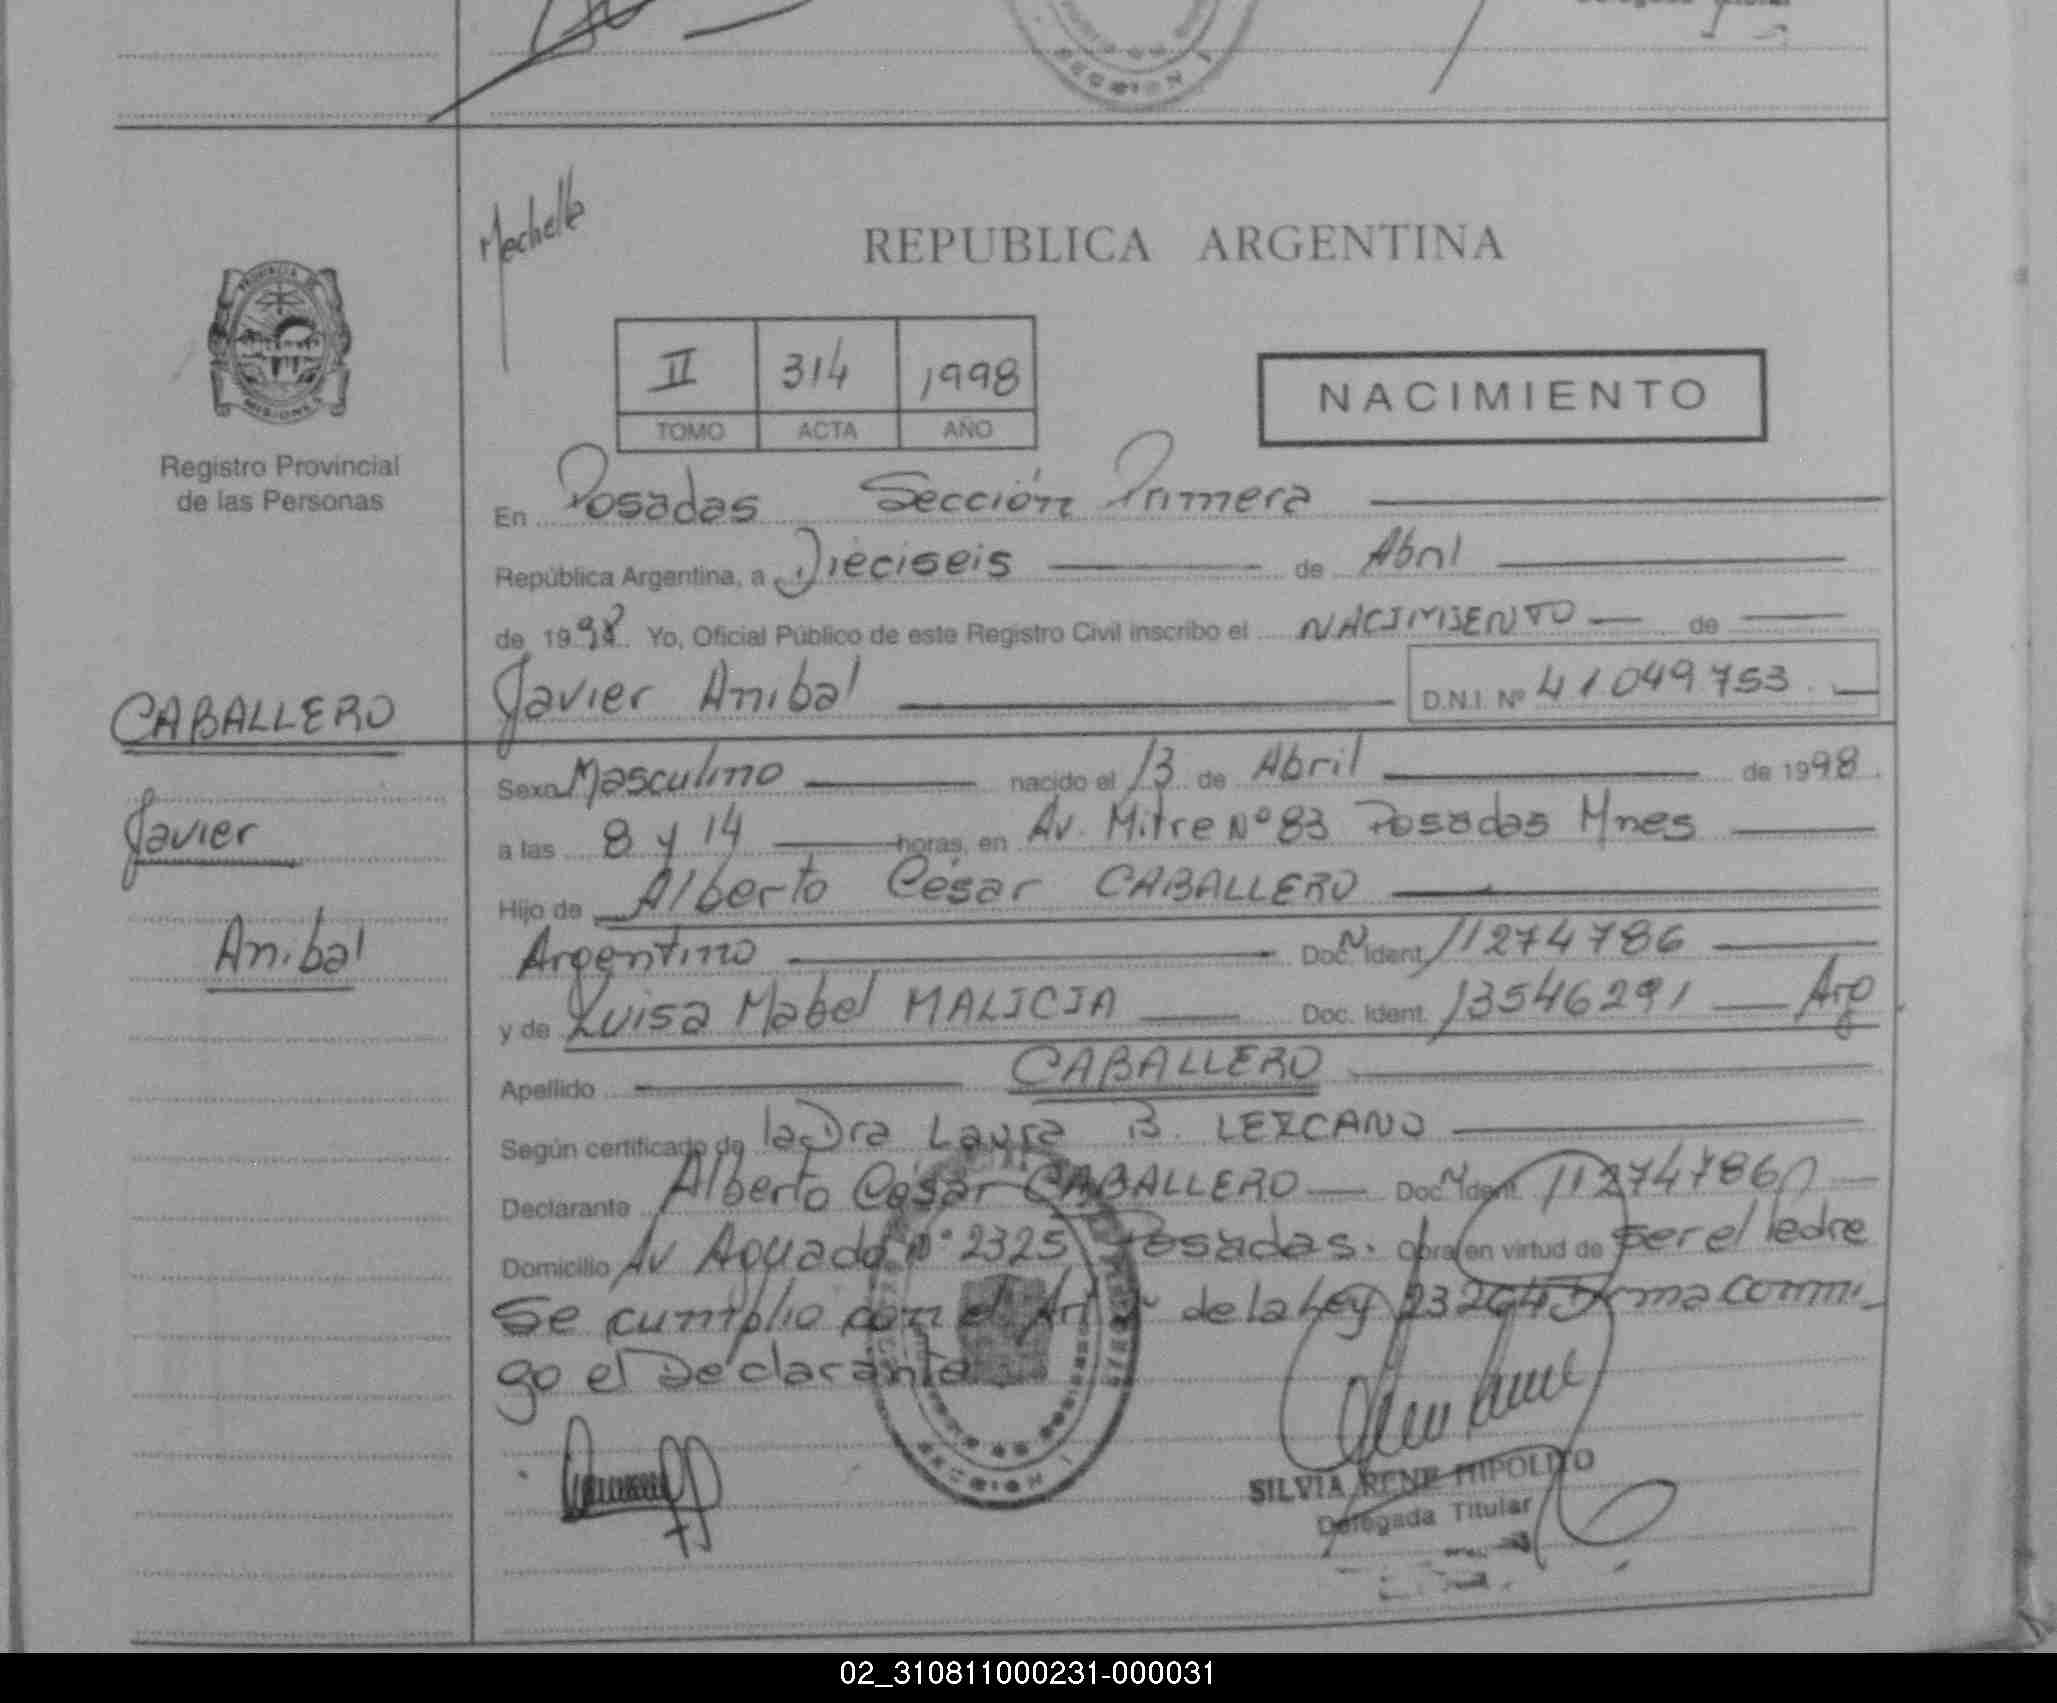 Mechelle
REPUBLICA ARGENTINA
PROVINCIA DE
MISIONES
Registro Provincial
de las Personas
II 314 1998
TOMO ACTA AÑO
NACIMIENTO
En Posadas Sección Primera
República Argentina, a Dieciseis de Abril
de 1998. Yo, Oficial Público de este Registro Civil inscribo el NACIMIENTO de
Javier Anibal D.N.I. Nº 41049753
CABALLERO
Javier
Anibal
Sexo Masculino nacido el 13 de Abril de 1998
a las 8 y 14 horas, en Av. Mitre Nº 83 Posadas Mnes
Hijo de Alberto César CABALLERO
Argentino Doc. N Ident. 11274786
y de Luisa Mabel MALICIA Doc. Ident. 13546291 Arg
Apellido CABALLERO
Según certificado de la Dra Laura B. LEZCANO
Declarante Alberto César CABALLERO Doc. N Ident. 11274786
Domicilio Av Aguado Nº 2325 Posadas. Obra en virtud de ser el
Se cumplio con el Art de la Ley 23264 Firma conmi-
go el Declarante
SECCION 1
SILVIA RENE HIPOLITO
Delegada Titular
02_310811000231-000031